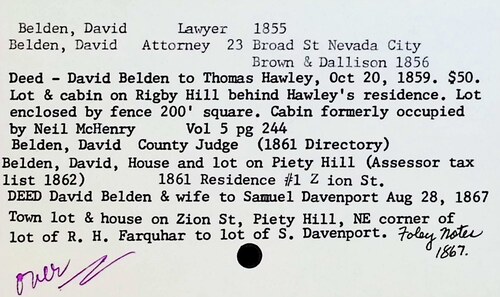 Belden, David Lawyer 1855
Belden, David Attorney 23 Broad St Nevada City
Brown & Dallison 1856
Deed - David Belden to Thomas Hawley, Oct 20, 1859. $50.
Lot & cabin on Rigby Hill behind Hawley's residence. Lot
enclosed by fence 200' square. Cabin formerly occupied
by Neil McHenry Vol 5 pg 244
Belden, David County Judge (1861 Directory)
Belden, David, House and lot on Piety Hill (Assessor tax
list 1862) 1861 Residence #1 Z ion St.
DEED David Belden & wife to Samuel Davenport Aug 28, 1867
Town lot & house on Zion St, Piety Hill, NE corner of
lot of R. H. Farquhar to lot of S. Davenport. Foley Notes
1867.
over